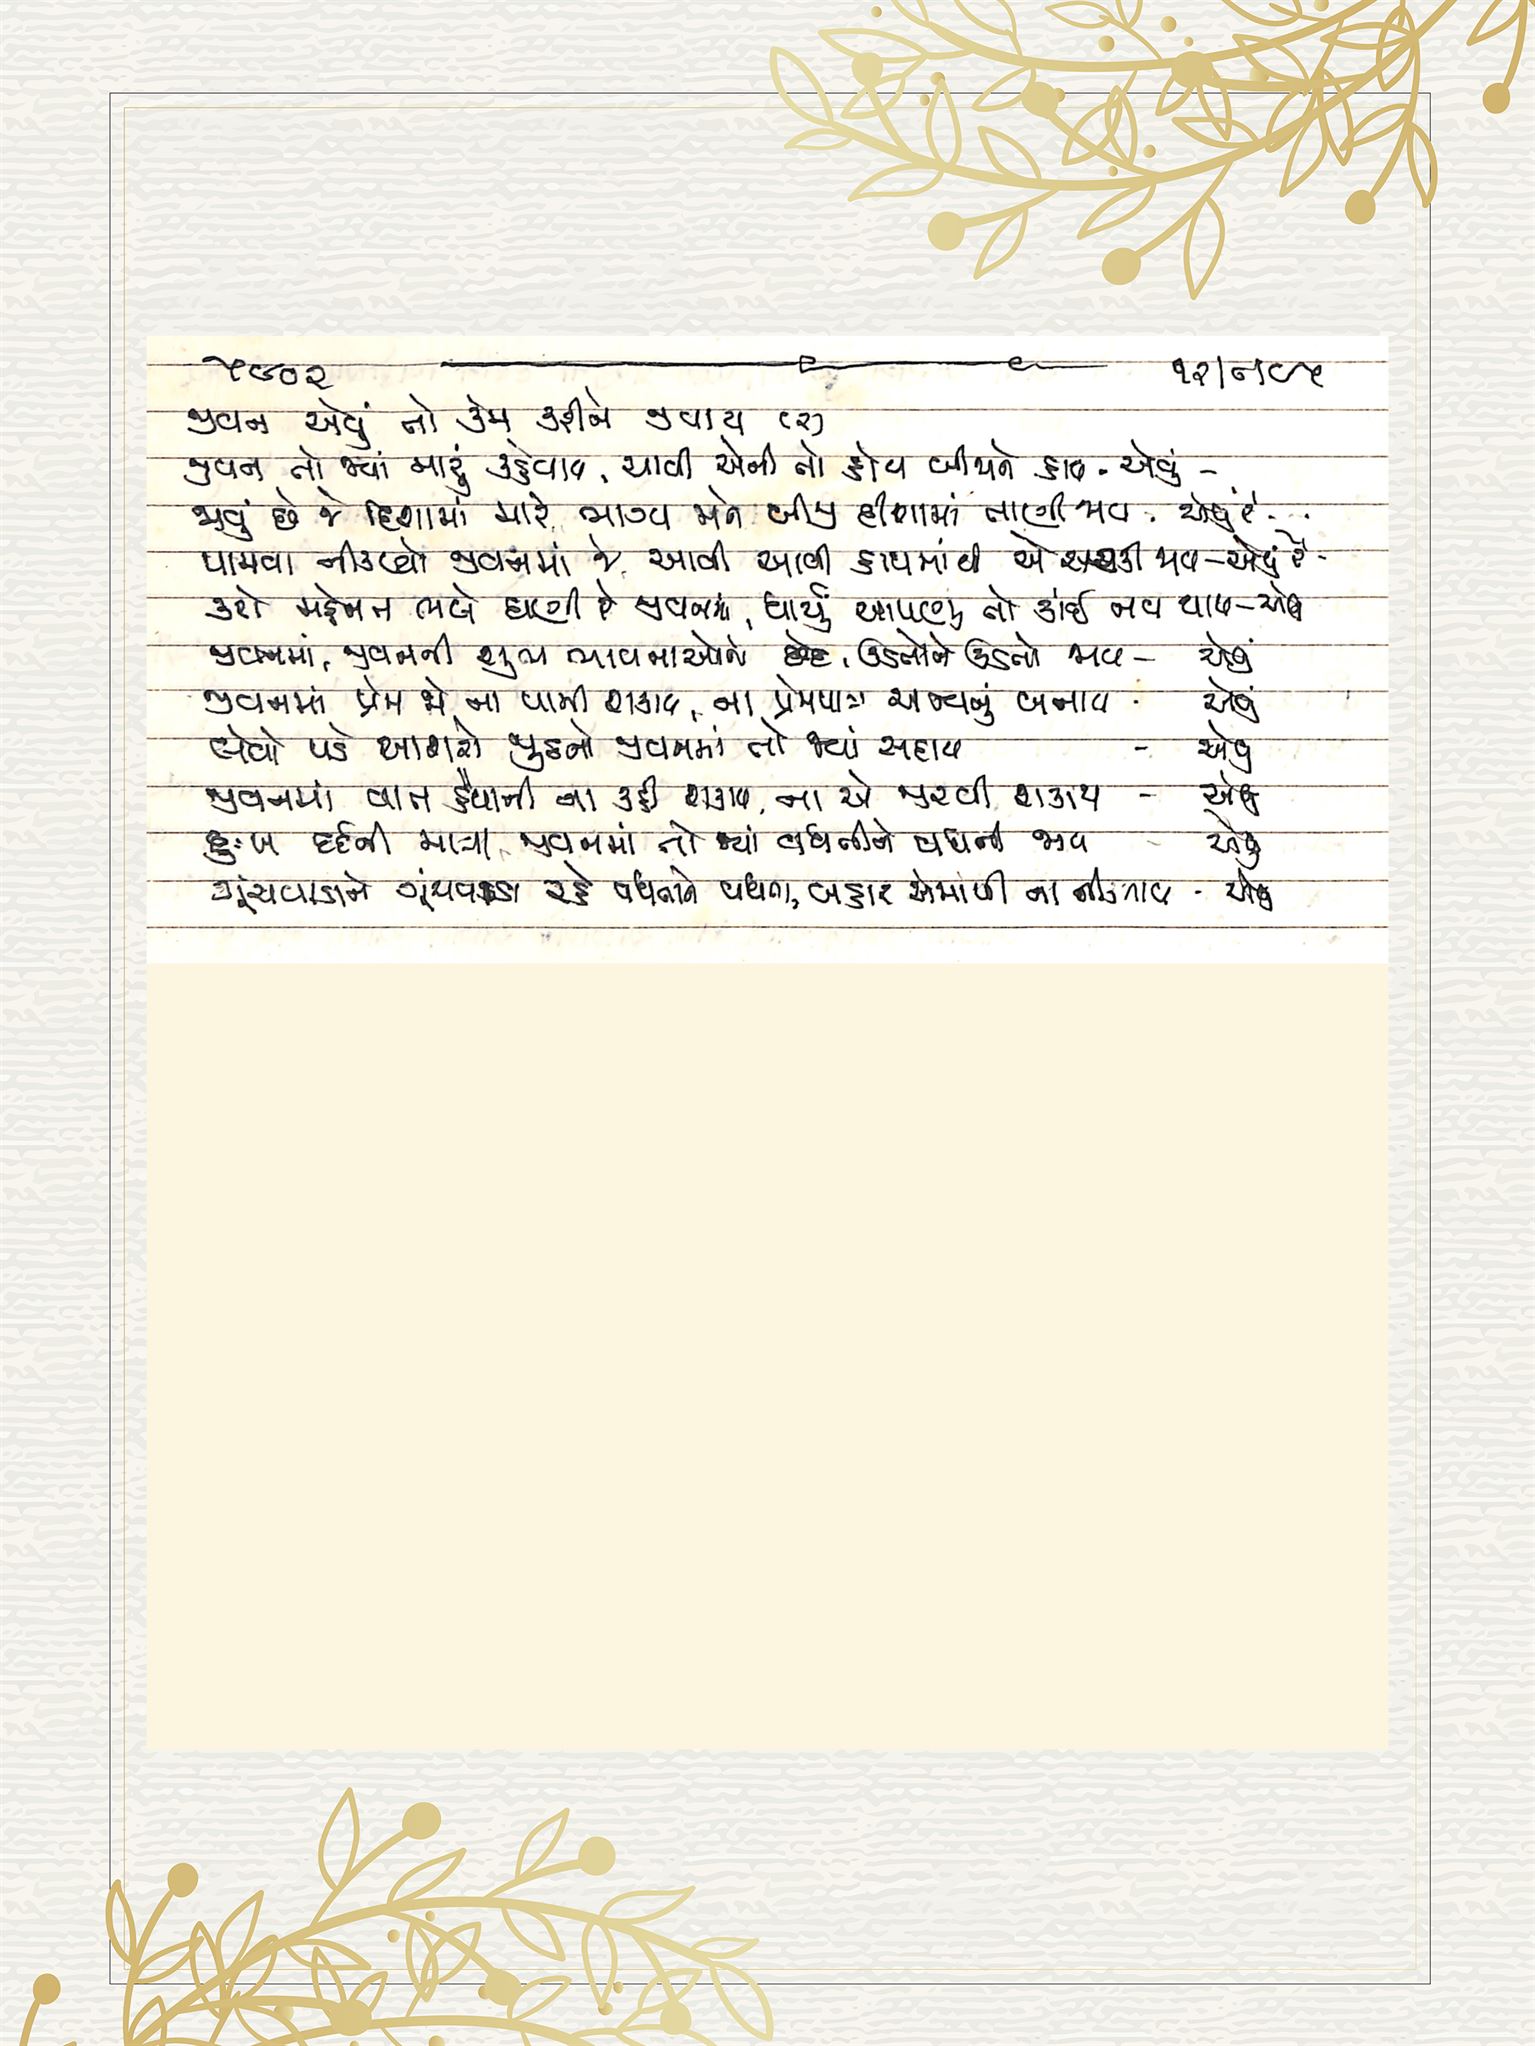 ૫૭૦૨ ૧૨/૩/૯૫
જીવન એવું તો કેમ કરીને જીવાય (૨)
જીવન તો જ્યાં મારું કહેવાય, ચાવી એની તો કોઈ બીજાને હાથ - એવું -
જાવું છે જે દિશામાં મારે, ભાગ્ય મને બીજી દીશામાં તાણી જાય - એવું રે -
પામવા નીકળ્યો જીવનમાં જે, આવી આવી હાથમાંથી એ સરકી જાય - એવું રે -
કરી મહેનત ભલે ઘણી રે જીવનમાં, ધાર્યું આપણું તો કાંઈ નવ થાય - એવું
જીવનમાં, જીવનની શુભ ભાવનાઓનો છેદ, ઉડતોને ઉડતો જાય - એવું
જીવનમાં પ્રેમ જો ના પામી શકાય, ના પ્રેમપાત્ર અન્યનું બનાય - એવું
લેવો પડે આશરો જુઠનો જીવનમાં તો જ્યાં સદાય - એવું
જીવનમાં વાત હૈયાની ના કહી શકાય, ના એ જીરવી શકાય - એવું
દુઃખ દર્દની માત્રા, જીવનમાં તો જ્યાં વધતીને વધતી જાય - એવું
ગૂંચવાડાને ગૂંચવાડા રહે વધતાને વધતા, બહાર એમાંથી ના નીકળાય - એવું